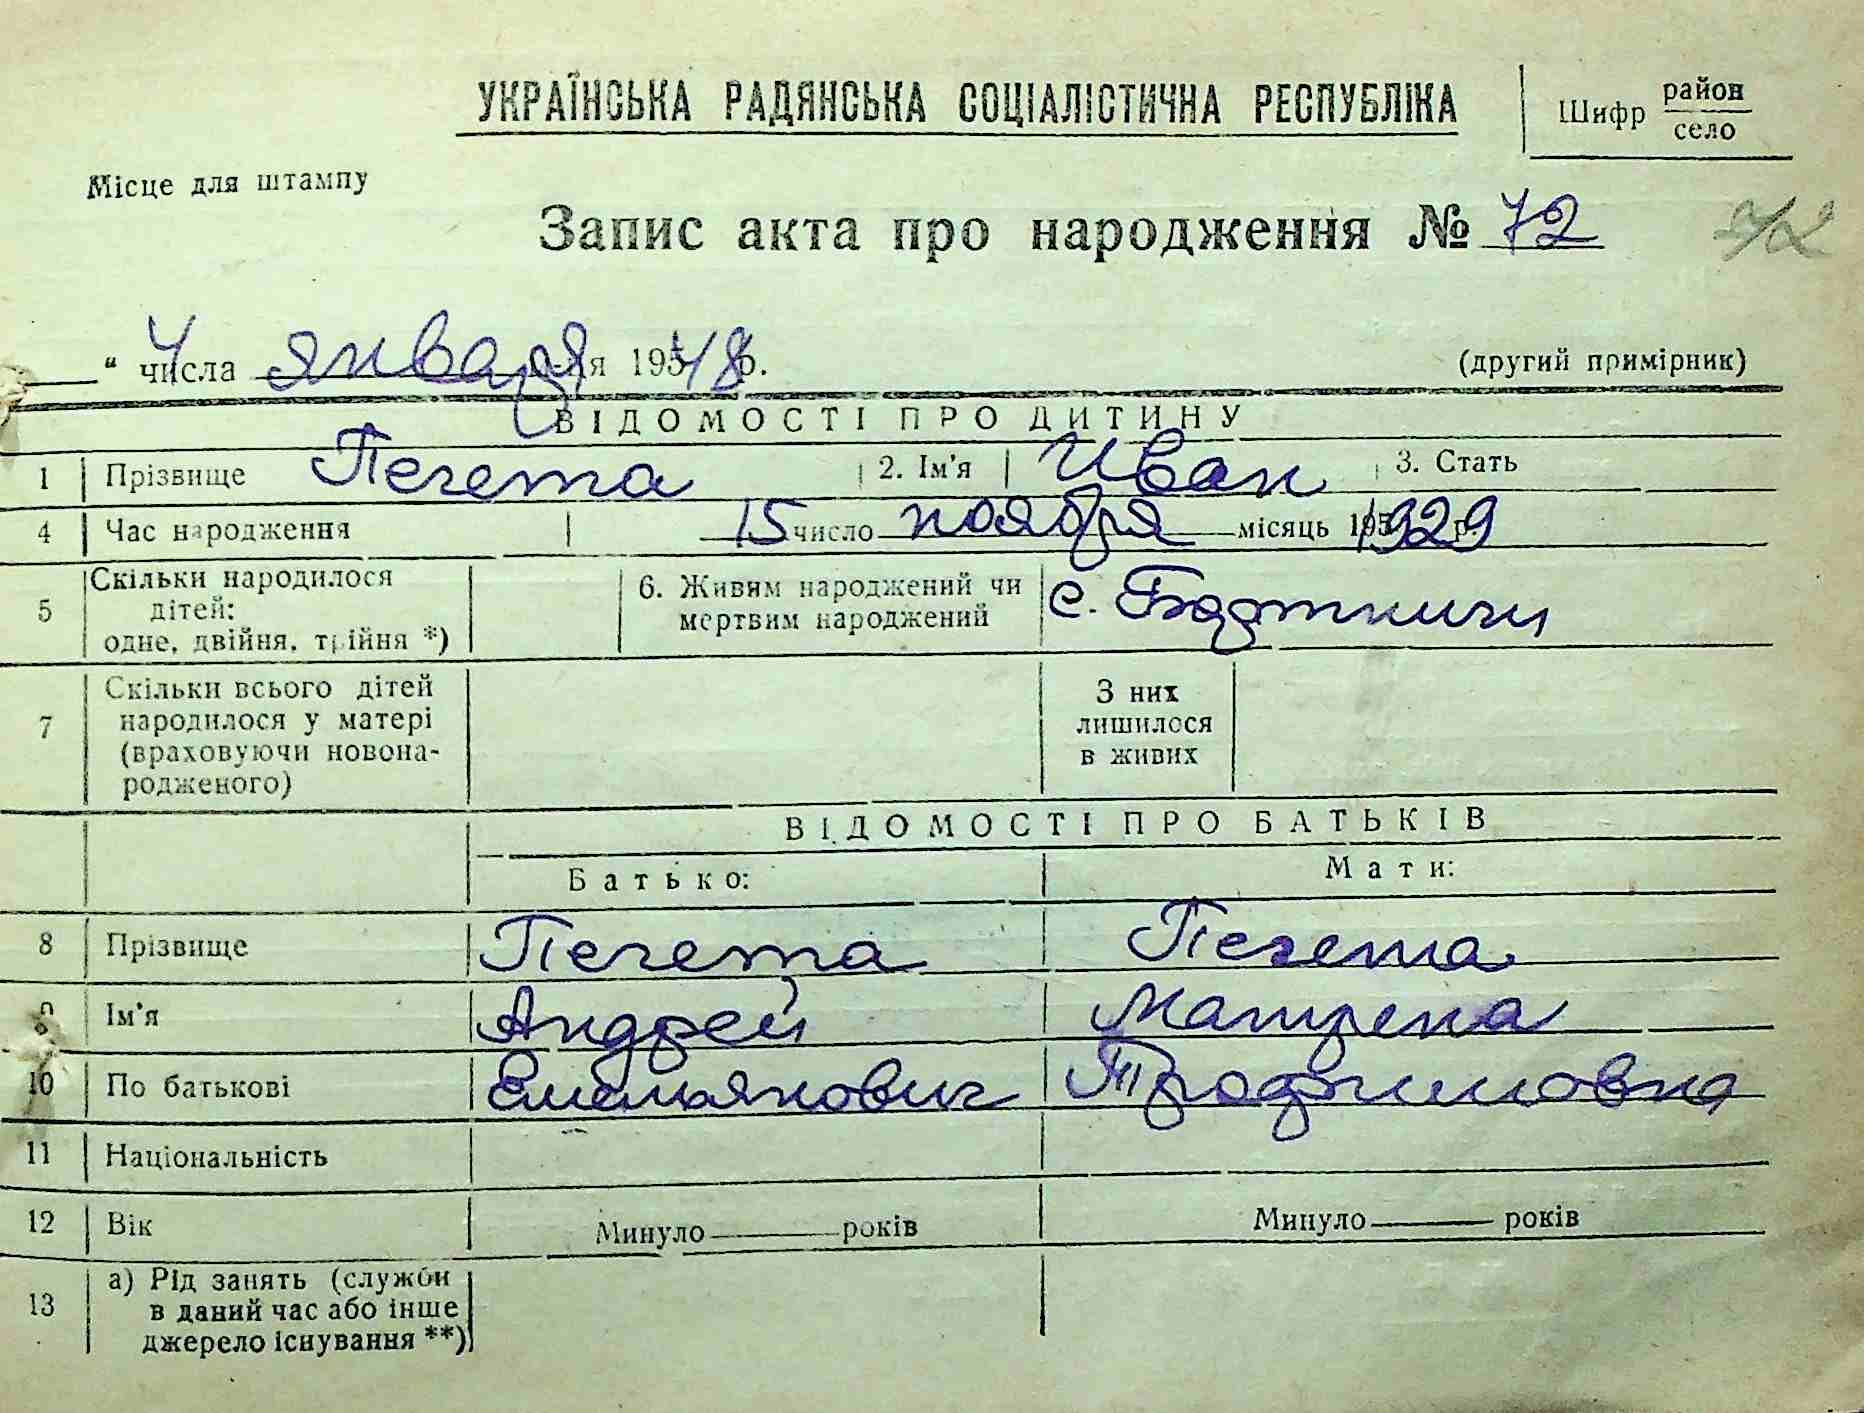 УКРАЇНСЬКА РАДЯНСЬКА СОЦІАЛІСТИЧНА РЕСПУБЛІКА
Шифр район
село
Місце для штампу
Запис акта про народження № 72
“ 4 числа января ля 1948 р.
(другий примірник)
ВІДОМОСТІ ПРО ДИТИНУ
1 Прізвище Печета 2. Ім'я Иван 3. Стать
4 Час народження 15 число ноября місяць 1929 р.
5 Скільки народилося дітей: одне, двійня, трійня *) 6. Живим народжений чи мертвим народжений с.
7 Скільки всього дітей народилося у матері (враховуючи новонародженого) З них лишилося в живих
ВІДОМОСТІ ПРО БАТЬКІВ
Батько: Мати:
8 Прізвище Печета Печета
9 Ім'я Андрей Матрена
10 По батькові Емельянович Трофимовна
11 Національність
12 Вік Минуло років Минуло років
13 а) Рід занять (служби
в даний час або інше
джерело існування **)